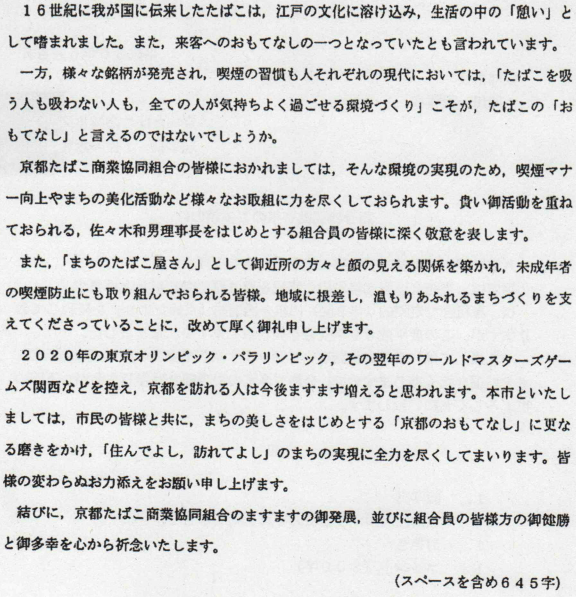 １６世紀に我が国に伝来したたばこは，江戸の文化に溶け込み，生活の中の「憩い」と
して嗜まれました。また，来客へのおもてなしの一つとなっていたとも言われています。
　一方，様々な銘柄が発売され，喫煙の習慣も人それぞれの現代においては，「たばこを吸
う人も吸わない人も，全ての人が気持ちよく過ごせる環境づくり」こそが，たばこの「お
もてなし」と言えるのではないでしょうか。
　京都たばこ商業協同組合の皆様におかれましては，そんな環境の実現のため，喫煙マナ
ー向上やまちの美化活動など様々なお取組に力を尽くしておられます。貴い御活動を重ね
ておられる，佐々木和男理事長をはじめとする組合員の皆様に深く敬意を表します。
　また，「まちのたばこ屋さん」として御近所の方々と顔の見える関係を築かれ，未成年者
の喫煙防止にも取り組んでおられる皆様。地域に根差し，温もりあふれるまちづくりを支
えてくださっていることに，改めて厚く御礼申し上げます。
　２０２０年の東京オリンピック・パラリンピック，その翌年のワールドマスターズゲー
ムズ関西などを控え，京都を訪れる人は今後ますます増えると思われます。本市といたし
ましては，市民の皆様と共に，まちの美しさをはじめとする「京都のおもてなし」に更な
る磨きをかけ，「住んでよし，訪れてよし」のまちの実現に全力を尽くしてまいります。皆
様の変わらぬお力添えをお願い申し上げます。
　結びに，京都たばこ商業協同組合のますますの御発展，並びに組合員の皆様方の御健勝
と御多幸を心から祈念いたします。
（スペースを含め６４５字）